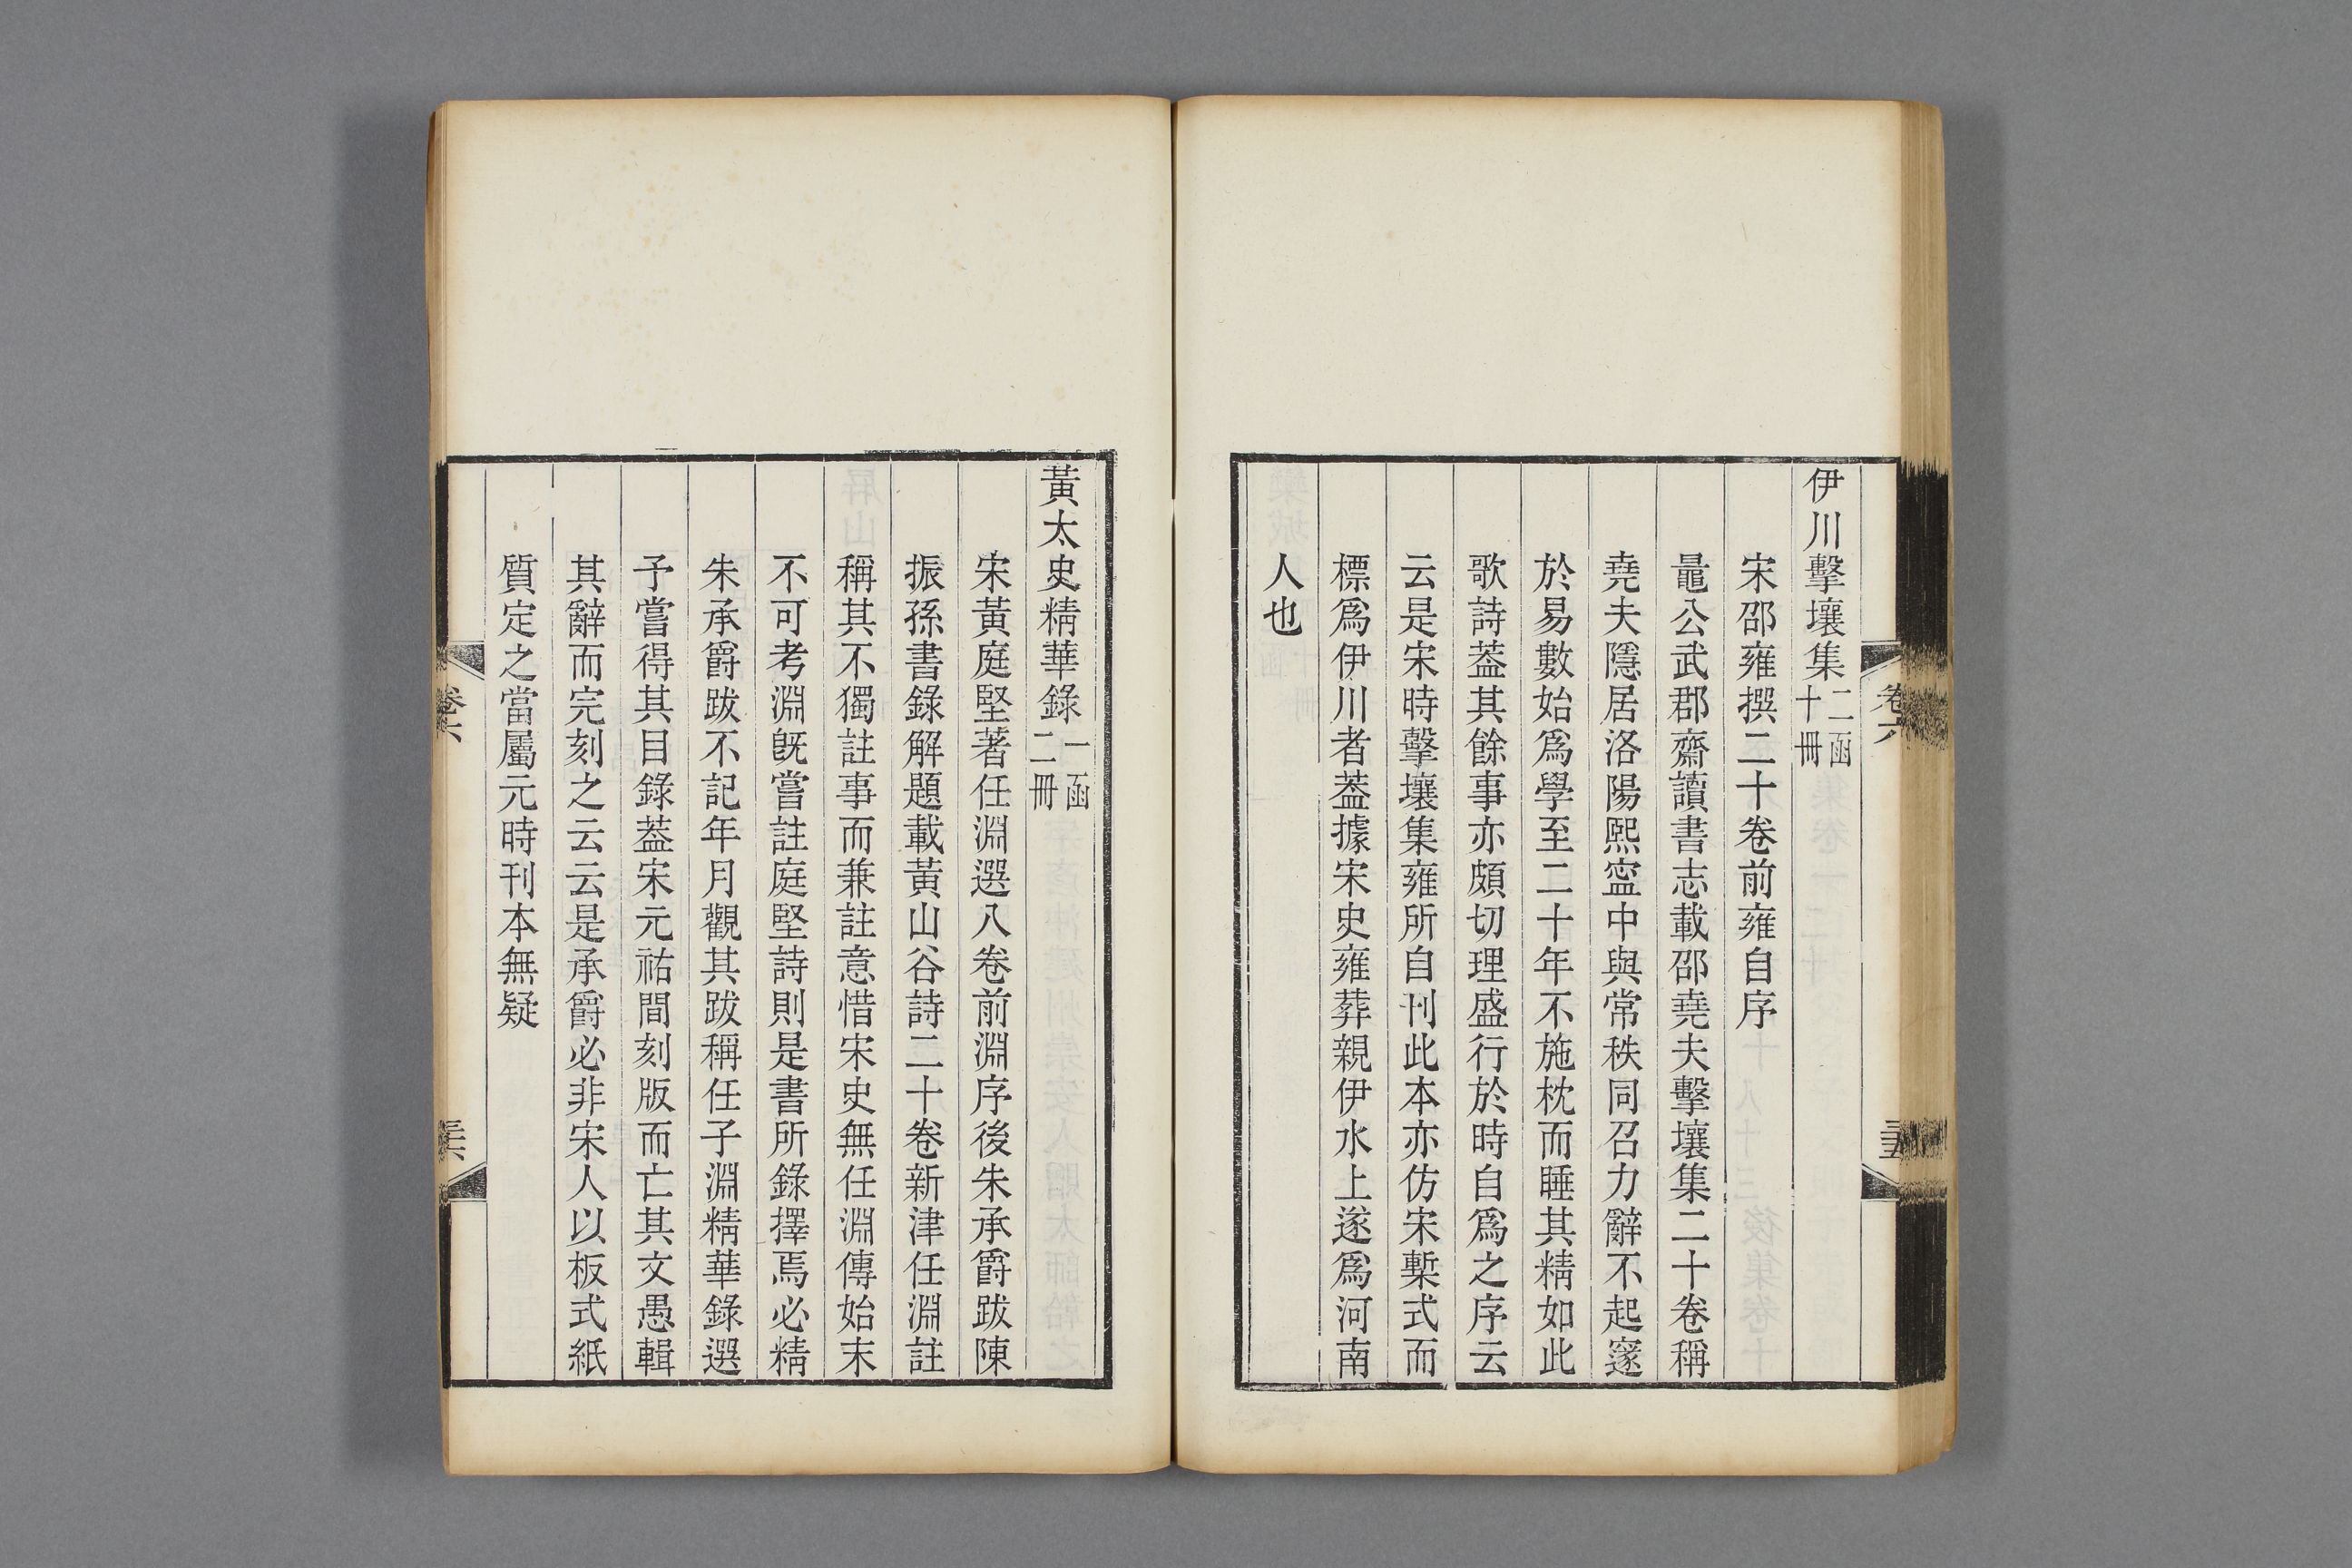 卷六
三十五
伊川擊壤集二函十冊
宋邵雍撰二十卷前雍自序
鼂公武郡齋讀書志載邵堯夫擊壤集二十卷稱
堯夫隱居洛陽熙寍中與常秩同召力辭不起邃
於易數始爲學至二十年不施枕而睡其精如此
歌詩葢其餘事亦頗切理盛行於時自爲之序云
云是宋時擊壤集雍所自刊此本亦仿宋槧式而
標爲伊川者葢據宋史雍葬親伊水上遂爲河南
人也
黃太史精華錄一函二冊
宋黃庭堅著任淵選八卷前淵序後朱承爵跋陳
振孫書錄解題載黃山谷詩二十卷新津任淵註
稱其不獨註事而兼註意惜宋史無任淵傳始末
不可考淵旣嘗註庭堅詩則是書所錄擇焉必精
朱承爵跋不記年月觀其跋稱任子淵精華錄選
予嘗得其目錄葢宋元祐間刻版而亡其文愚輯
其辭而完刻之云云是承爵必非宋人以板式紙
質定之當屬元時刊本無疑
卷六
三十六